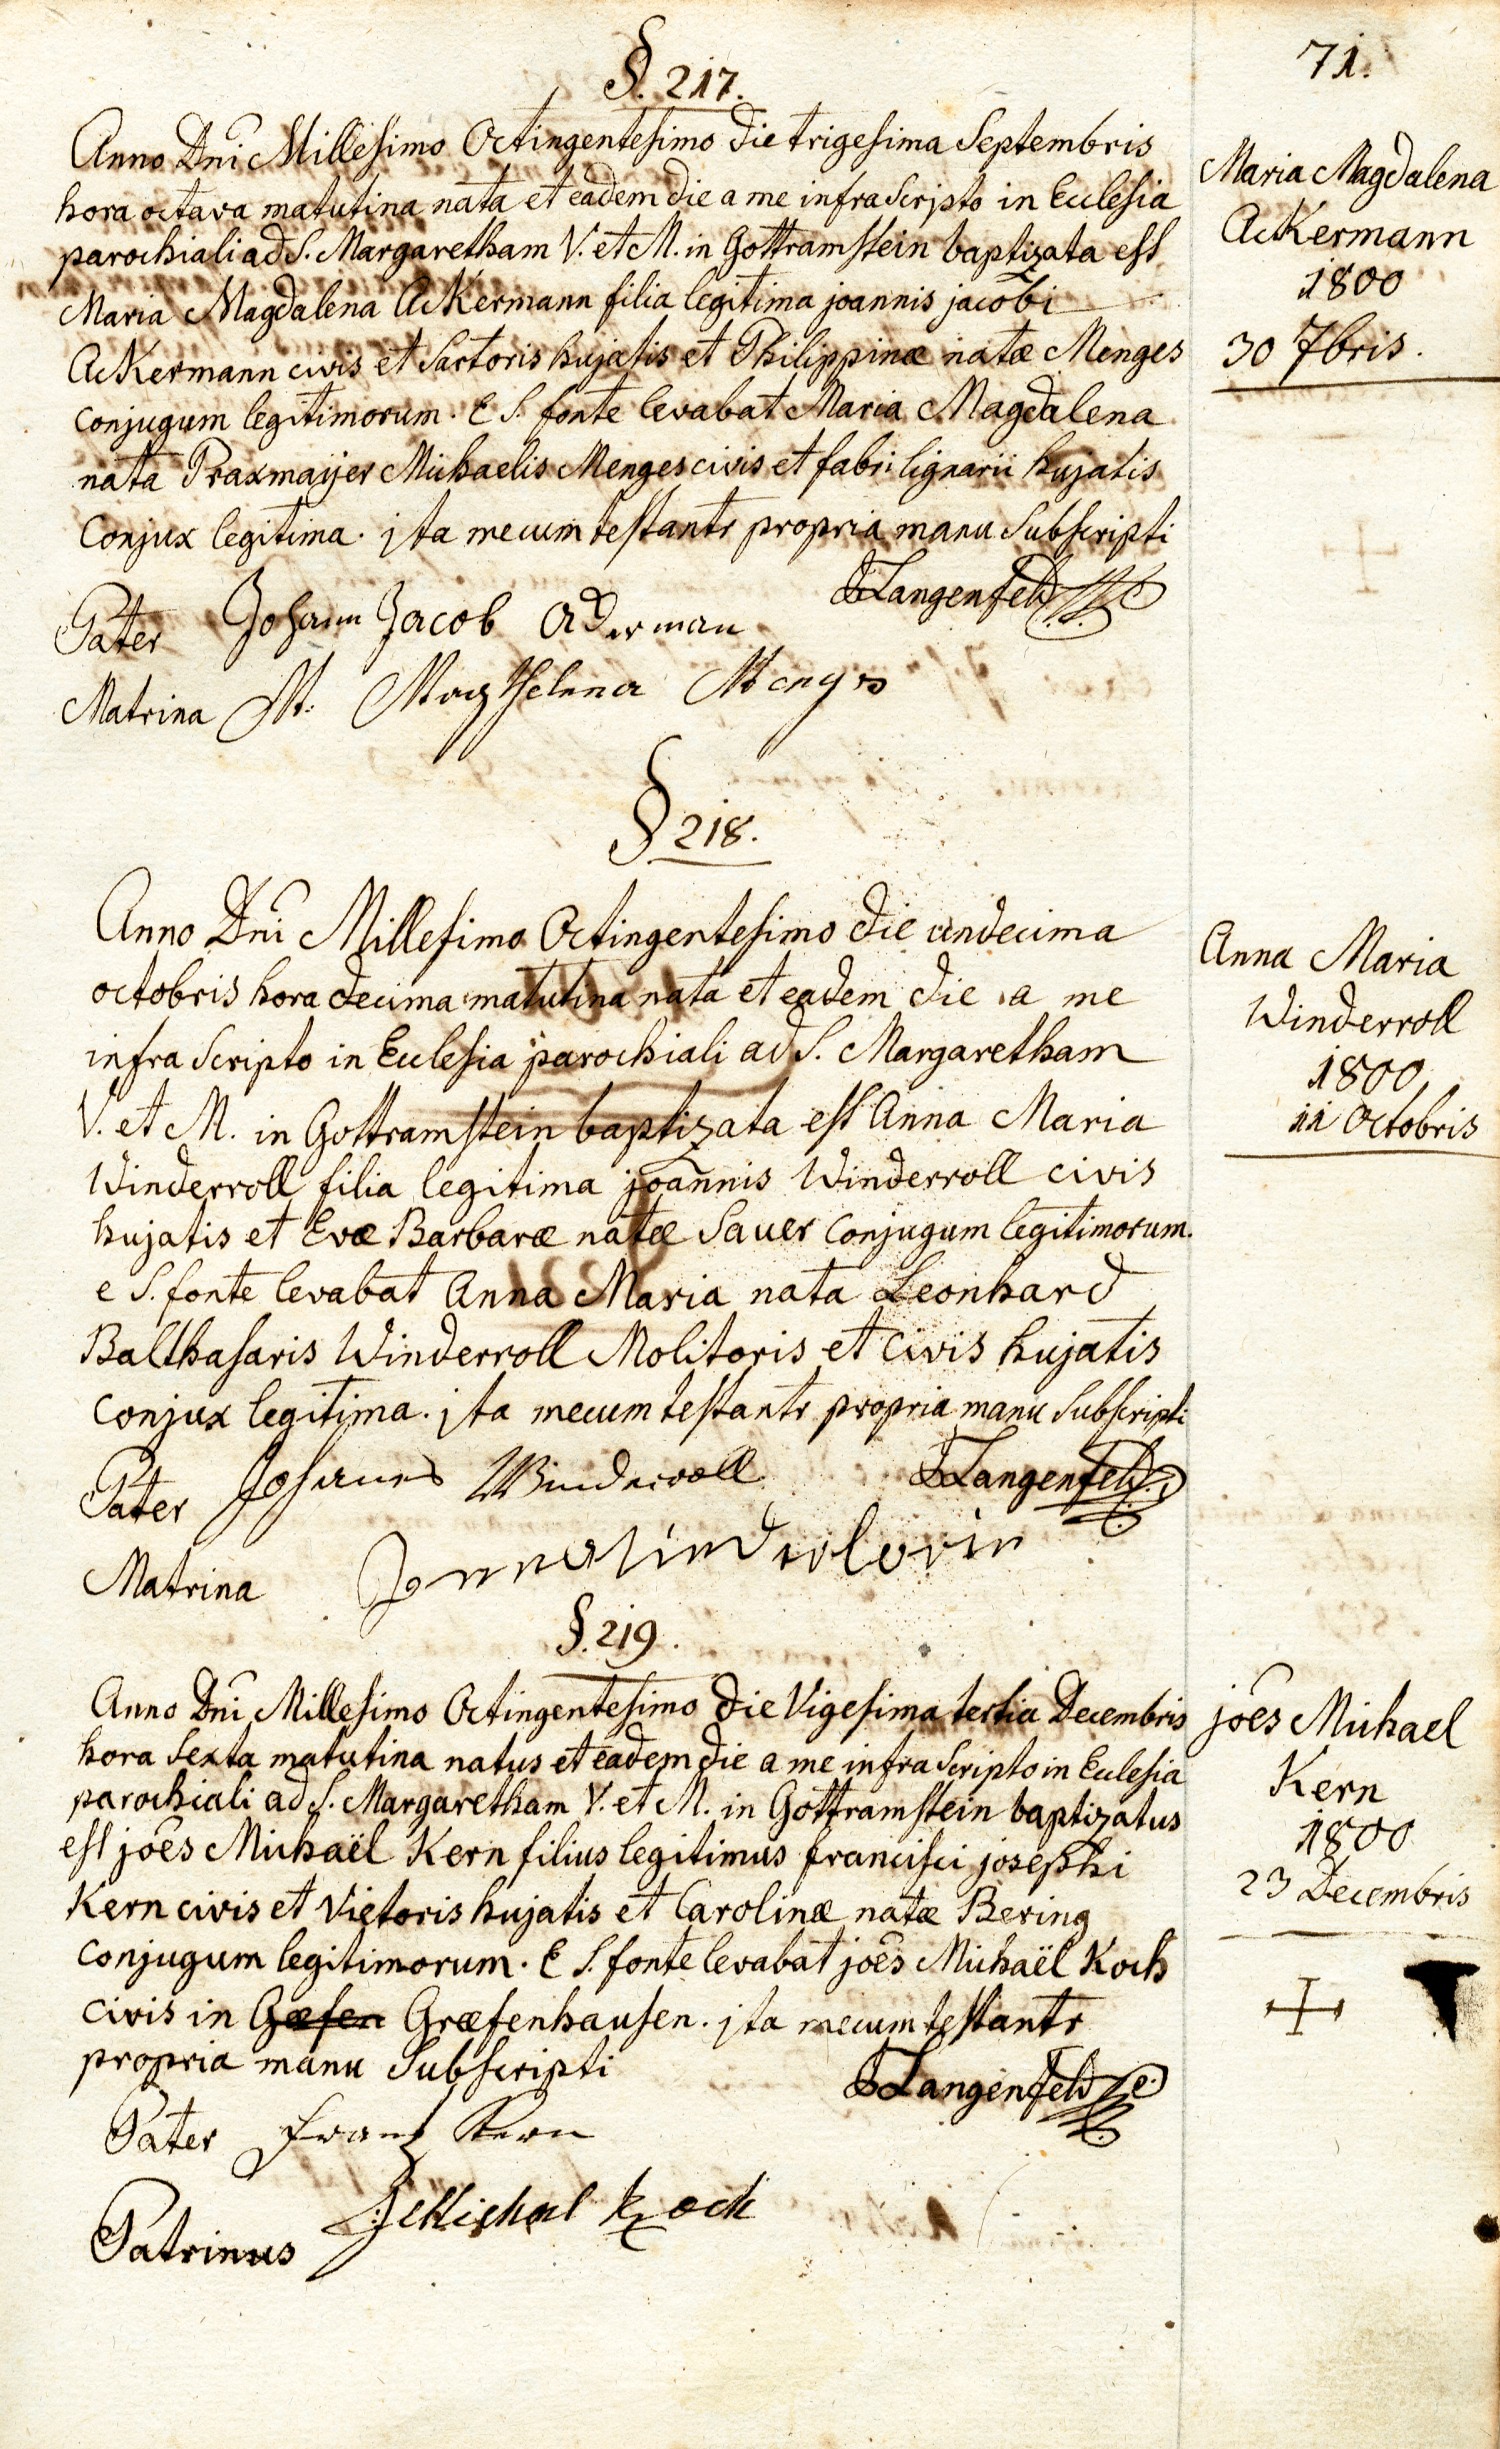 71.
§. 217.
Anno Dni Millesimo Octingentesimo die trigesima Septembris
hora octava matutina nata et eadem die a me infra scripto in Ecclesia
parochiali ad S. Margaretham V. et M. in Gottramstein baptizata est
Maria Magdalena Ackermann filia legitima joannis jacobi
Ackermann civis et Sartoris hujatis et Philippinæ natæ Menges
conjugum legitimorum. E S. fonte levabat Maria Magdalena
nata Praxmaÿer Michaelis Menges civis et fabri lignarii hujatis
Conjux legitima. jta mecum testantr propria manu Subscripti
Langenfeld
Pater Johann Jacob Ackerman
Matrina M: Magthelena Menges
Maria Magdalena
Ackermann
1800
30 7bris.
§ 218.
Anno Dni Millesimo Octingentesimo die undecima
octobris hora decima matutina nata et eadem die a me
infra scripto in Ecclesia parochiali ad S. Margaretham
V. et M. in Gottramstein baptizata est Anna Maria
Winderroll filia legitima joannis Winderroll civis
hujatis et Evæ Barbaræ natæ Sauer conjugum legitimorum.
e S. fonte levabat Anna Maria nata Leonhard
Balthasaris Winderroll Molitoris et civis hujatis
conjux legitima. jta mecum testantr propria manu Subscripti
Langenfeld
Pater Johannes Winderroll
Matrina
Anna Maria
Winderroll
1800
11 Octobris
§. 219.
Anno Dni Millesimo Octingentesimo die Vigesima tertia Decembris
hora Sexta matutina natus et eadem die a me infra scripto in Ecclesia
parochiali ad S. Margaretham V. et M. in Gottramstein baptizatus
est joês Michaël Kern filius legitimus francisci josephi
Kern civis et Vietoris hujatis et Carolinæ natæ Bering
conjugum legitimorum. E S. fonte levabat joês Michaël Koch
civis in Gæfen Græfenhausen. jta mecum testantr
propria manu Subscripti
Langenfeld
Pater Franz Kern
Patrinus J Michael Koch
joês Michael
Kern
1800
23 Decembris